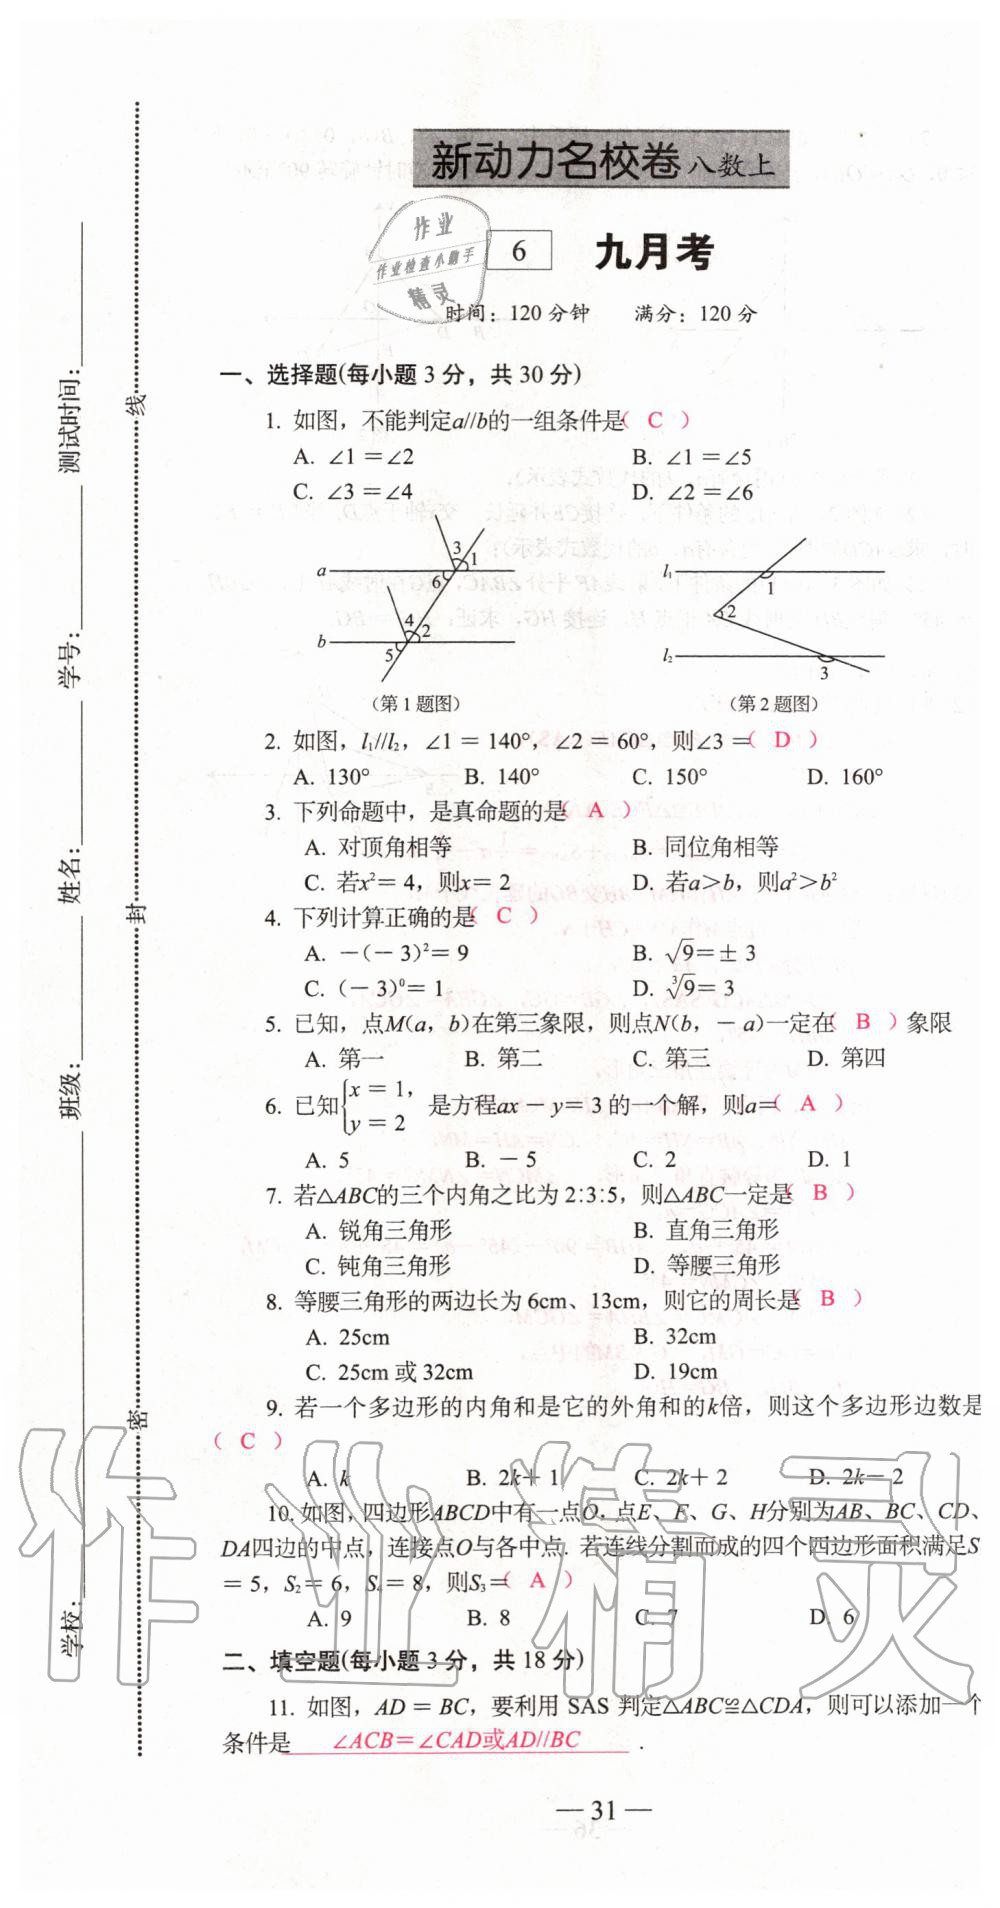 新动力名校卷 八数上
作业
作业检查小助手
精灵
6 九月考
时间：120分钟 满分：120分
一、选择题(每小题3分，共30分)
1. 如图，不能判定a//b的一组条件是( C )
A. ∠1=∠2 B. ∠1=∠5
C. ∠3=∠4 D. ∠2=∠6
a b 1 2 3 4 5 6
l₁ l₂ 1 2 3
(第1题图) (第2题图)
2. 如图，l₁//l₂，∠1=140°，∠2=60°，则∠3=( D )
A. 130° B. 140° C. 150° D. 160°
3. 下列命题中，是真命题的是( A )
A. 对顶角相等 B. 同位角相等
C. 若x²=4，则x=2 D. 若a>b，则a²>b²
4. 下列计算正确的是( C )
A. －(－3)²=9 B. √9=±3
C. (－3)⁰=1 D. ³√9=3
5. 已知，点M(a，b)在第三象限，则点N(b，－a)一定在( B )象限
A. 第一 B. 第二 C. 第三 D. 第四
6. 已知{x=1，y=2 是方程ax－y=3的一个解，则a=( A )
A. 5 B. －5 C. 2 D. 1
7. 若△ABC的三个内角之比为2:3:5，则△ABC一定是( B )
A. 锐角三角形 B. 直角三角形
C. 钝角三角形 D. 等腰三角形
8. 等腰三角形的两边长为6cm、13cm，则它的周长是( B )
A. 25cm B. 32cm
C. 25cm或32cm D. 19cm
9. 若一个多边形的内角和是它的外角和的k倍，则这个多边形边数是
( C )
A. k B. 2k+1 C. 2k+2 D. 2k－2
10. 如图，四边形ABCD中有一点O，点E、F、G、H分别为AB、BC、CD、
DA四边的中点，连接点O与各中点. 若连线分割而成的四个四边形面积满足S
=5，S₂=6，S₄=8，则S₃=( A )
A. 9 B. 8 C. 7 D. 6
二、填空题(每小题3分，共18分)
11. 如图，AD=BC，要利用SAS判定△ABC≌△CDA，则可以添加一个
条件是 ∠ACB=∠CAD或AD//BC .
—31—
学校： 班级： 姓名： 学号： 测试时间：
密 封 线
作业精灵